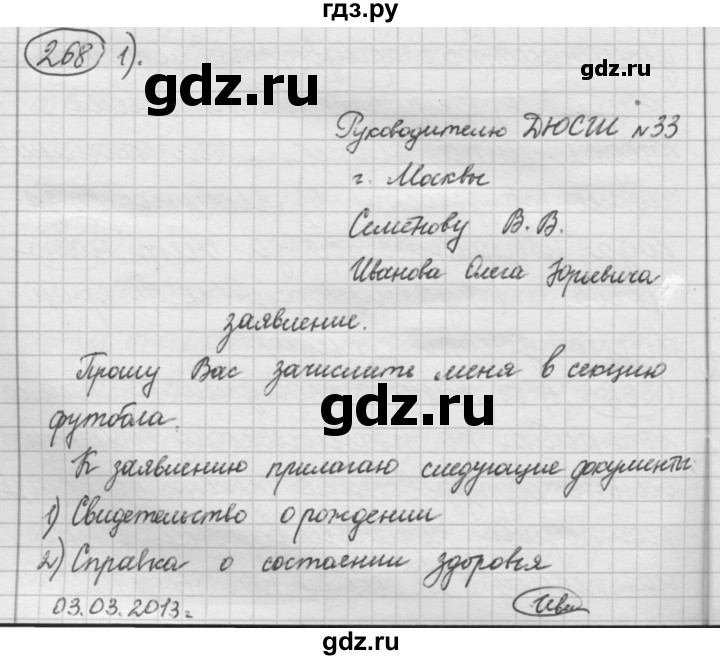 гдз.ру
268 1).
gdz.ru
gdz.ru
Руководителю ДЮСШ №33
г. Москвы
Семёнову В.В.
Иванова Олега Юрьевича
заявление.
Прошу Вас зачислить меня в секцию
футбола.
gdz.ru
К заявлению прилагаю следующие документы:
1) Свидетельство о рождении
2) Справка о состоянии здоровья
03.03.2013г.
gdz.ru